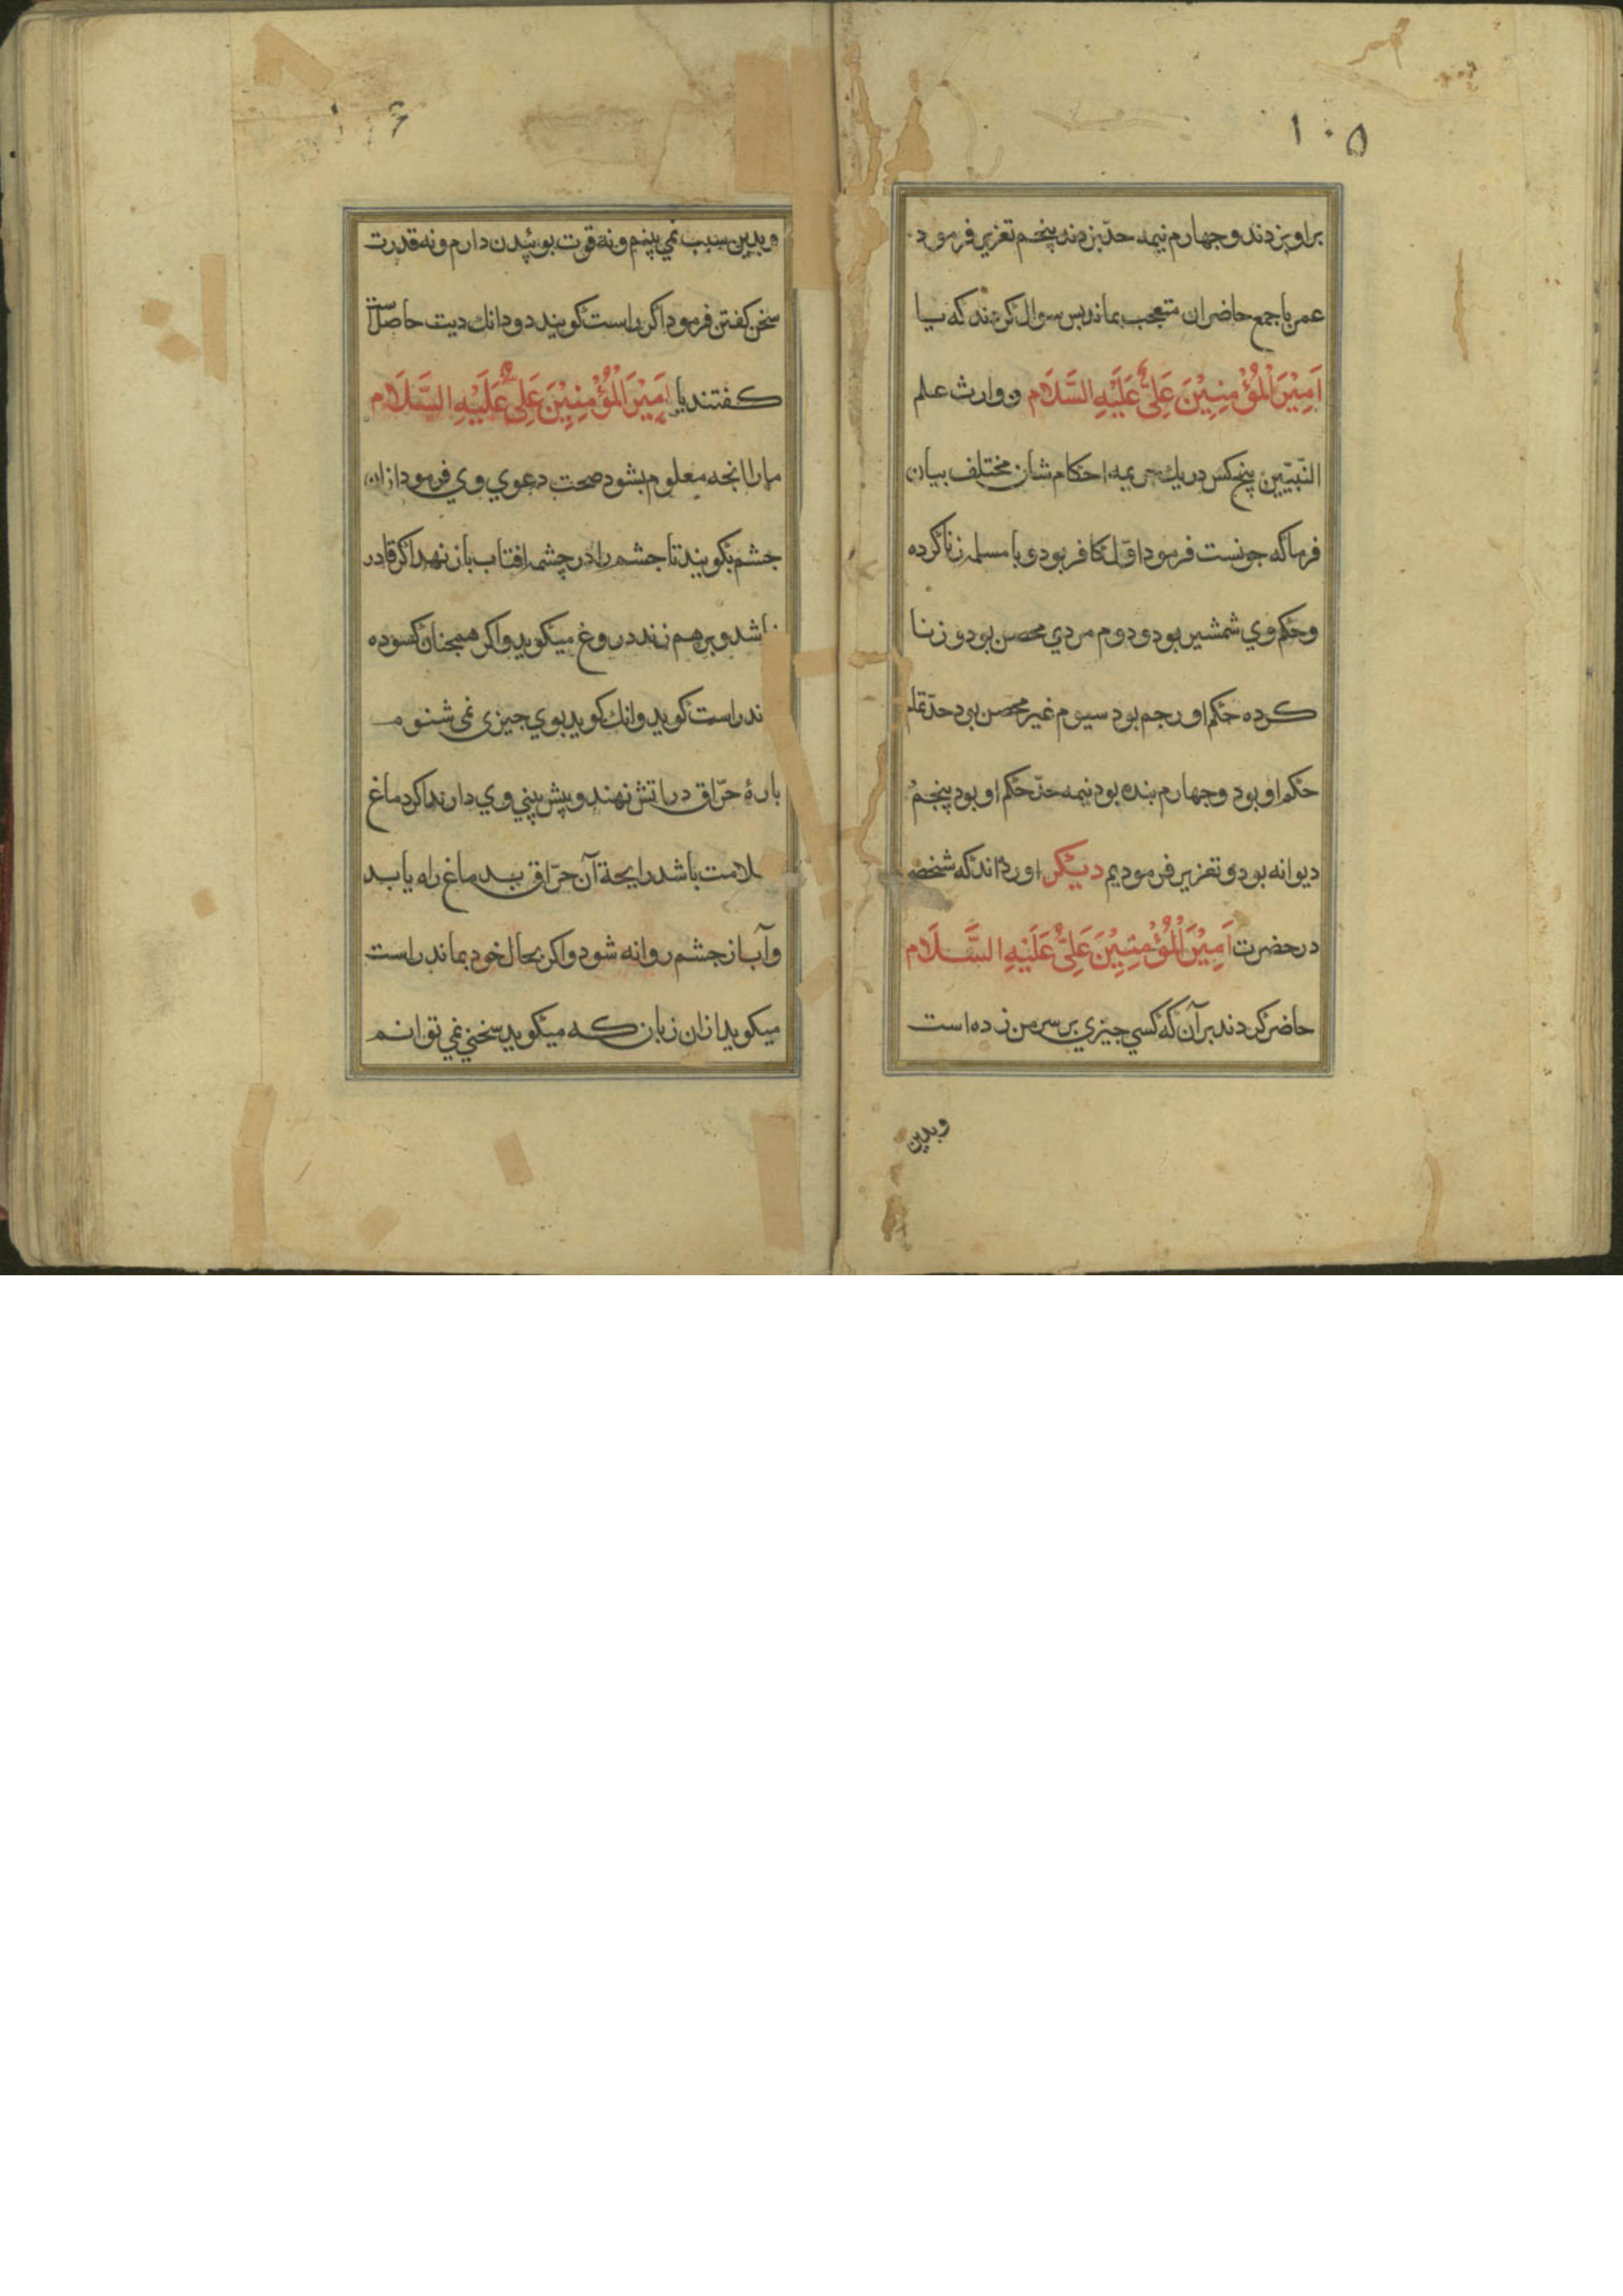 ۱۰۵
براو بزدند و جهارم نیمه حدّ بزدند پنجم تعزیر فرمود
عمر با جمع حاضران متعجب بماند بس سوال کردند که یا
اَمِیْرَالْمُؤْمِنِیْنَ عَلِیٌّ عَلَیْهِ السَّلَام و وارث علم
النّبیّین پنج کس در یك جریمه احکام شان مختلف بیان
فرما که جونست فرمود اوّل کافر بود و با مسلمه زنا کرده
وحکم وي شمشیر بود و دوم مردي محصن بود و زنا
کرده حکم او رجم بود سیوم غیر محصن بود حدّ تمام
حکم او بود وجهارم بنده بود نیمه حدّ حکم او بود پنجم
دیوانه بود و تعزیر فرمودیم دیکر اورده اند که شخصی
در حضرت اَمِیْرَالْمُؤْمِنِیْنَ عَلِیٌّ عَلَیْهِ السَّلَام
حاضر کردند بر آن که کسي جیزي بر سر من زده است
وبدین
۱۰۶
و بدین سبب نمي بینم و نه قوت بوئیدن دارم و نه قدرت
سخن کفتن فرمود اکر راست کویند دو دانك دیت حاصل است
کفتند یا اَمِیْرَالْمُؤْمِنِیْنَ عَلِیٌّ عَلَیْهِ السَّلَام
مارا انجه معلوم بشود صحت دعوي وي فرمود از ان
جشم بکویند تا جشم را در چشمه افتاب باز نهد اکر قادر
باشد و بر هم زند دروغ میکوید واکر همجنان کسوده
ند راست کوید وانك کوید بوي جیزی نمی شنوم
بارهٔ حرّاق در اتش نهند و پیش بیني وي دارند اکر دماغ
سلامت باشد رایحة آن حرّاق بدماغ راه یابد
وآب از جشم روانه شود واکر بحال خود بماند راست
میکوید از ان زبان که میکوید سخني نمي توانم